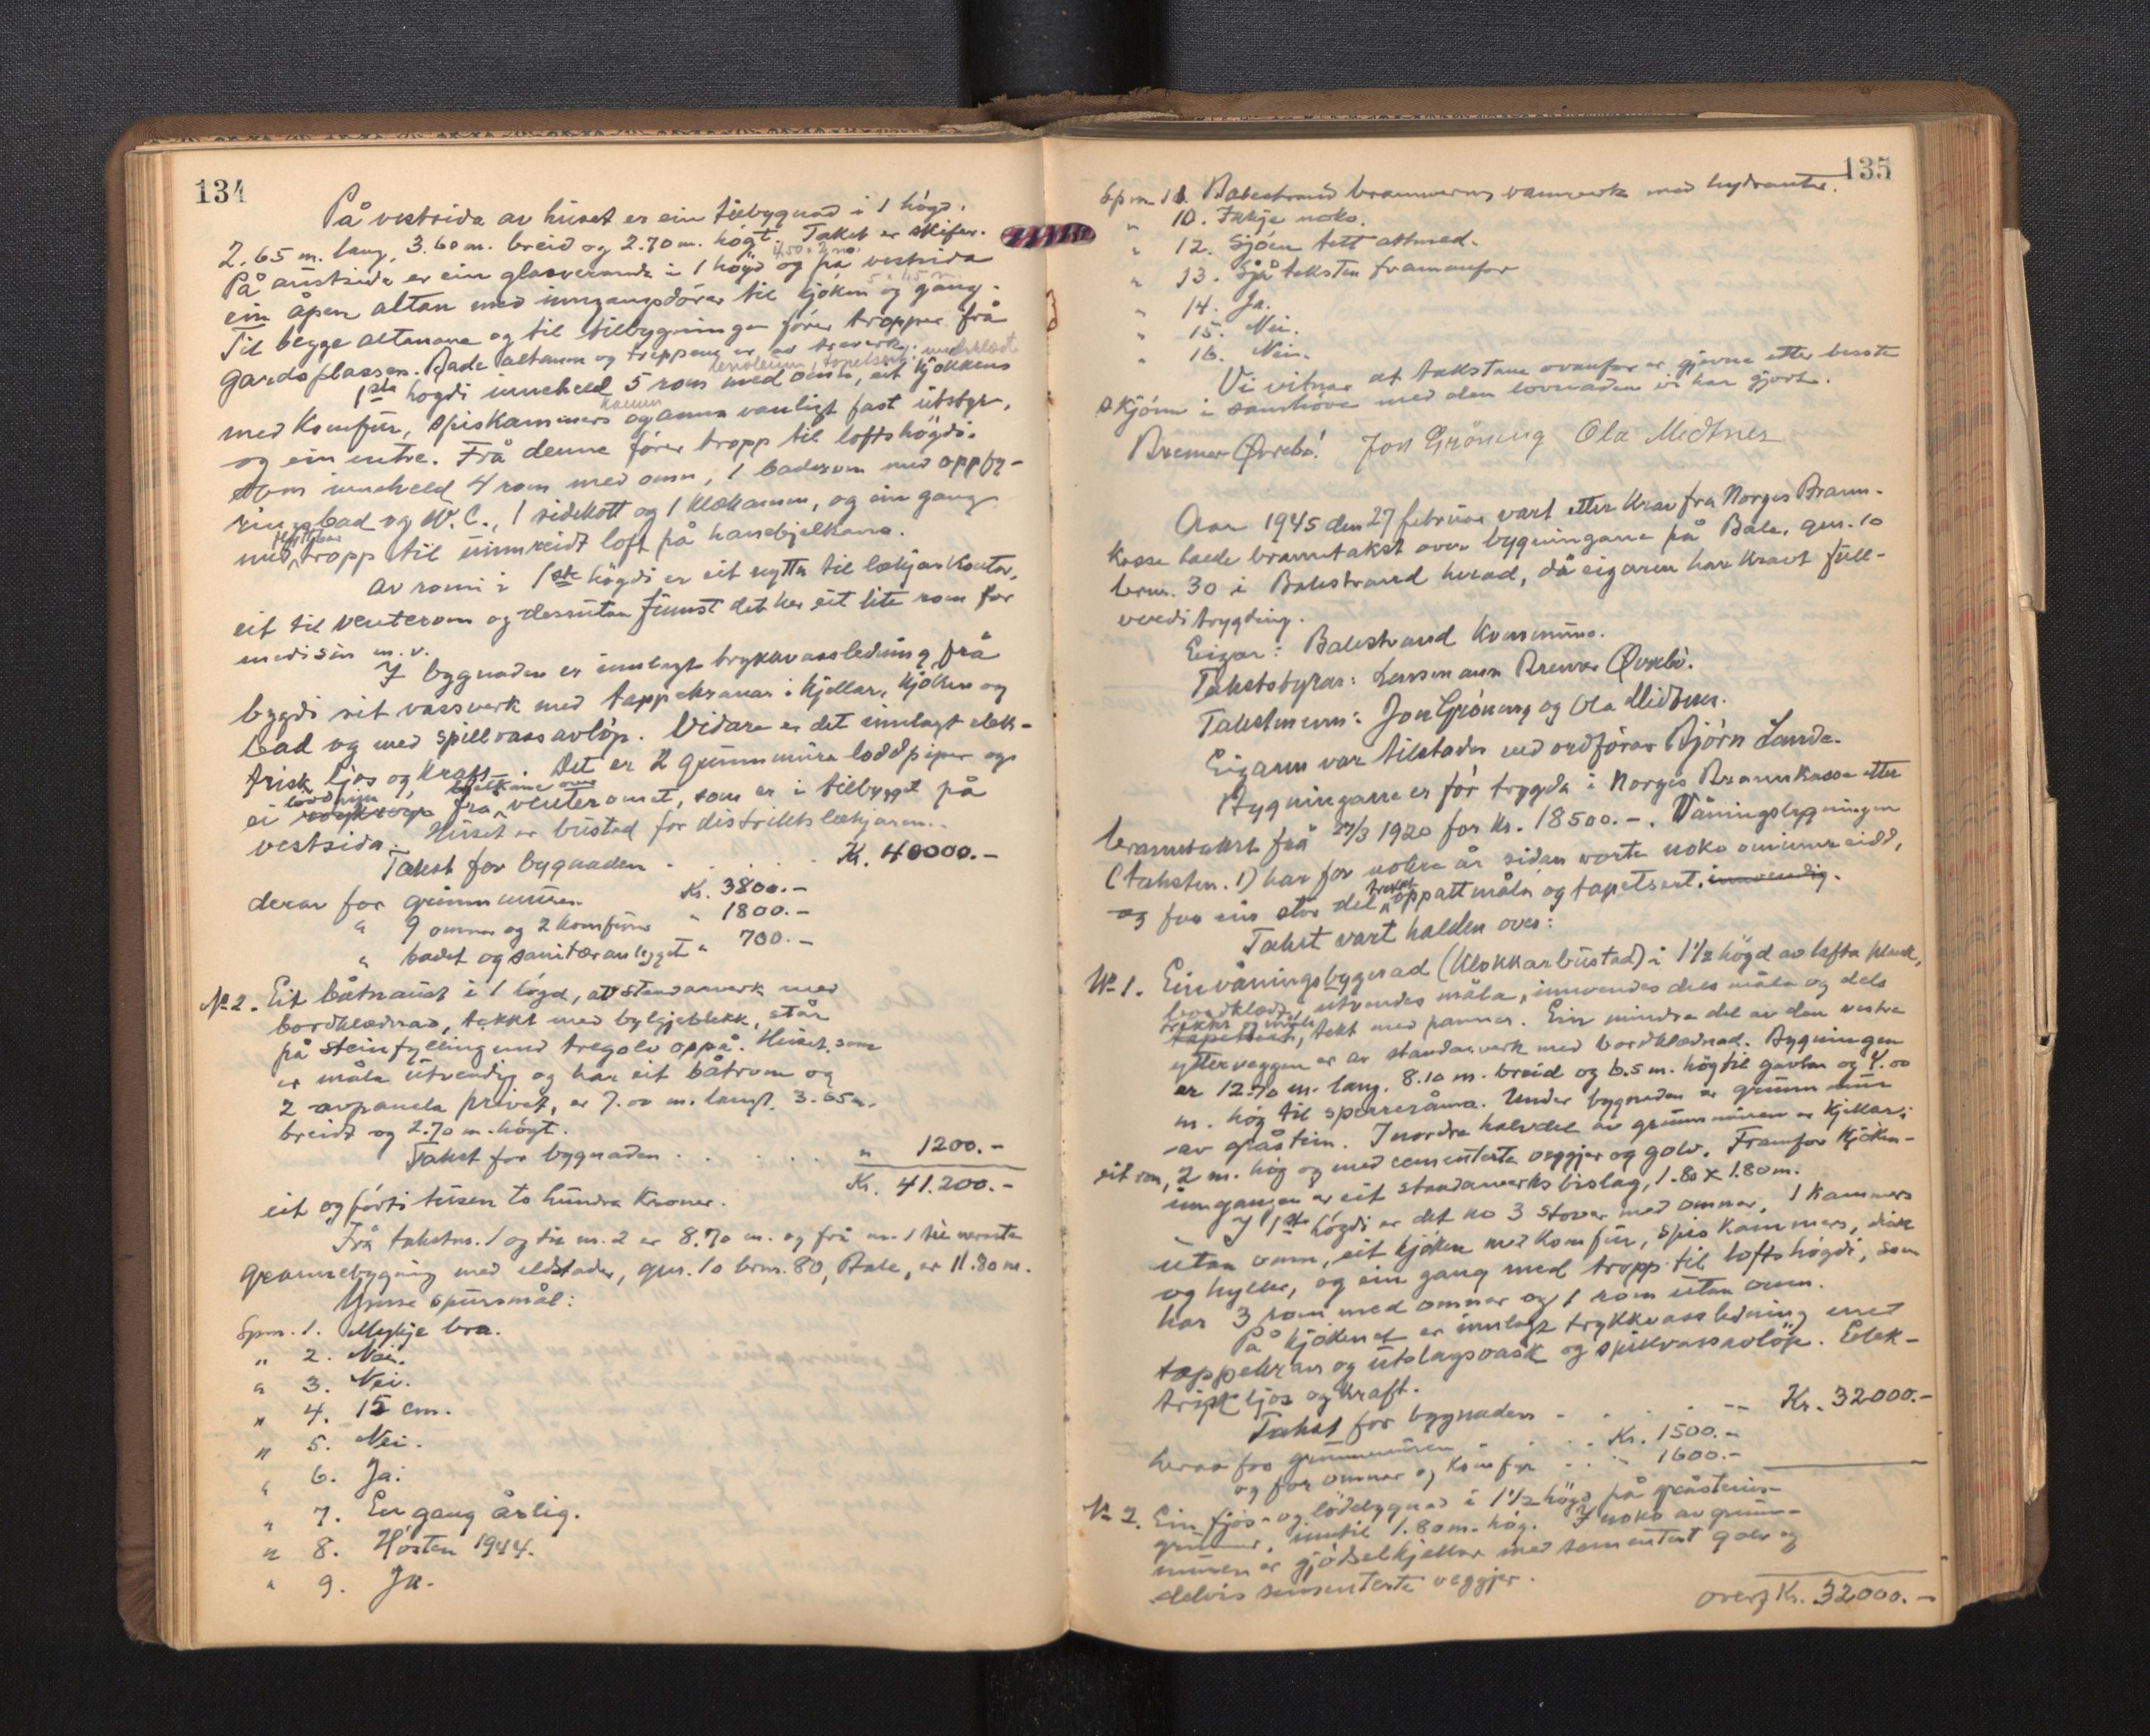 134
På vestsida av huset er ein tilbygnad i 1 högd.
2.65 m. lang, 3.60 m. breid og 2.70 m. högt. Taket er skifer.
På austsida er ein glasveranda i 1 högd og på vestsida
ein åpen altan med inngangsdörer til kjöken og gang.
Til begge altanane og til tilbygningen förer tropper frå
gardsplassen. Både altanen og troppene er av treverk.
1ste högdi inneheld 5 rom med omn, eit kjökken
med komfur, spiskammers og anna vanligt fast utstyr,
og ein entre. Frå denne förer tropp til loftshögdi.
som inneheld 4 rom med omn, 1 baderom med oppfy-
ringsbad og W.C., 1 sidekott og 1 klækamm, og ein gang
med tropp til uinnreidt loft på hanebjelkane.
Av romi i 1ste högdi er eit nytta til lækjarkontor,
eit til venterom og dessutan finnst det her eit lite rom for
medisin m.v.
I bygnaden er innlagt trykkvassledning frå
bygdi sit vassverk med tappekranar i kjellar, kjöken og
bad og med spillvassavlöp. Vidare er det innlagt elek-
trisk ljos og kraft. Det er 2 grunnmura loddpiper og
ei loddpipe frå bjelkane over venteromet, som er i tilbygget på
vestsida. Huset er bustad for distriktslækjaren.
Takst for bygnaden . . . . . Kr. 40000.-
derav for grunnmuren Kr. 3800.-
" 9 omnar og 2 komfurar " 1800.-
" badet og sanitæranlegget " 700.-
No 2. Eit båtnaust i 1 högd, av stendarverk med
bordklædnad, tekkt med bylgjeblekk, står
på steinfylling med tregolv oppå. Huset, som
er måla utvendig og har eit båtrom og
2 avpanela privet, er 7.00 m. langt, 3.65 m.
breidt og 2.70 m. högt.
Takst for bygnaden . . . . . " 1200.-
Kr. 41.200.-
eit og förti tusen to hundra kroner.
Frå takstnr. 1 og til nr. 2 er 8.70 m. og frå nr. 1 til nærmste
grannebygning med eldstader, gnr. 10 brnr. 80, Bale, er 11.80 m.
Ymse spursmål:
Spm. 1. Mykje bra.
" 2. Nei.
" 3. Nei.
" 4. 15 cm.
" 5. Nei.
" 6. Ja.
" 7. En gang årlig.
" 8. Hösten 1944.
" 9. Ja.
135
Spm. 10. Balestrand brannverns vannverk med hydranter.
" 10. Ikkje noko.
" 12. Sjöen tett attmed.
" 13. Sjå taksten framanfor
" 14. Ja.
" 15. Nei.
" 16. Nei.
Vi vitnar at takstane ovanfor er gjevne etter beste
skjönn i samhöve med den lovnaden vi har gjort.
Bremer Øvrebö. Jon Gröneng Ola Midtnes
Aar 1945 den 27 februar vart etter krav fra Norges Brann-
kasse halde branntakst over bygningane på Bale, gnr. 10
brnr. 30 i Balestrand herad, då eigaren har kravt full-
verditrygding.
Eigar: Balestrand Kommune.
Takststyrar: Lensmann Bremer Øvrebö.
Takstmenn: Jon Gröneng og Ola Midtnes.
Eigaren var tilstades ved ordförar Björn Lunde.
Bygningane er för trygda i Norges Brannkasse etter
branntakst frå 27/3 1920 for Kr. 18500.-. Våningsbygningen
(takstnr. 1) har for nokre år sidan vorte noko ominnreidd,
og for ein stor del trekkt oppatt måla og tapetsert, innvendig.
Takst vart halden over:
No 1. Ein våningsbygnad (Klokkarbustad) i 1½ högd av lafta plank,
bordklædt, utvendes måla, innvendes dels måla og dels
tapetsert, trekkt og måla, tekt med pannor. Ein mindre del av den vestre
ytterveggen er av standarverk med bordklædnad. Bygningen
er 12.70 m. lang, 8.10 m. breid og 6.5 m. hög til gavlen og 4.00
m. hög til sperreråma. Under bygnaden er grunnmur
av gråstein. I nordre halvdel av grunnmuren er kjellar:
eit rom, 2 m. hög og med cementerte veggjer og golv. Framfor kjöken-
inngangen er eit standarverks bislag, 1.80 x 1.80 m.
I 1ste högdi er det no 3 stover med omner, 1 kammers
utan omn, eit kjöken med komfur, spiskammers, disk
og hyller, og ein gang med tropp til loftshögdi, som
har 3 rom med omnar og 1 rom utan omn.
På kjökenet er innlagt trykkvassledning med
tappekran og utslagsvask og spillvassavlöp. Elek-
trisk ljos og kraft.
Takst for bygnaden . . . . . Kr. 32000.-
herav for grunnmuren . . . Kr. 1500.-
og for omnar og komfyr . . . 1600.-
No 2. Ein fjös- og lödebygnad i 1½ högd på gråsteins-
grunnmur, inntil 1.80 m. hög. I noko av grunn-
muren er gjödselkjellar med sementert golv og
delvis sementerte veggjer.
overf Kr. 32000.-